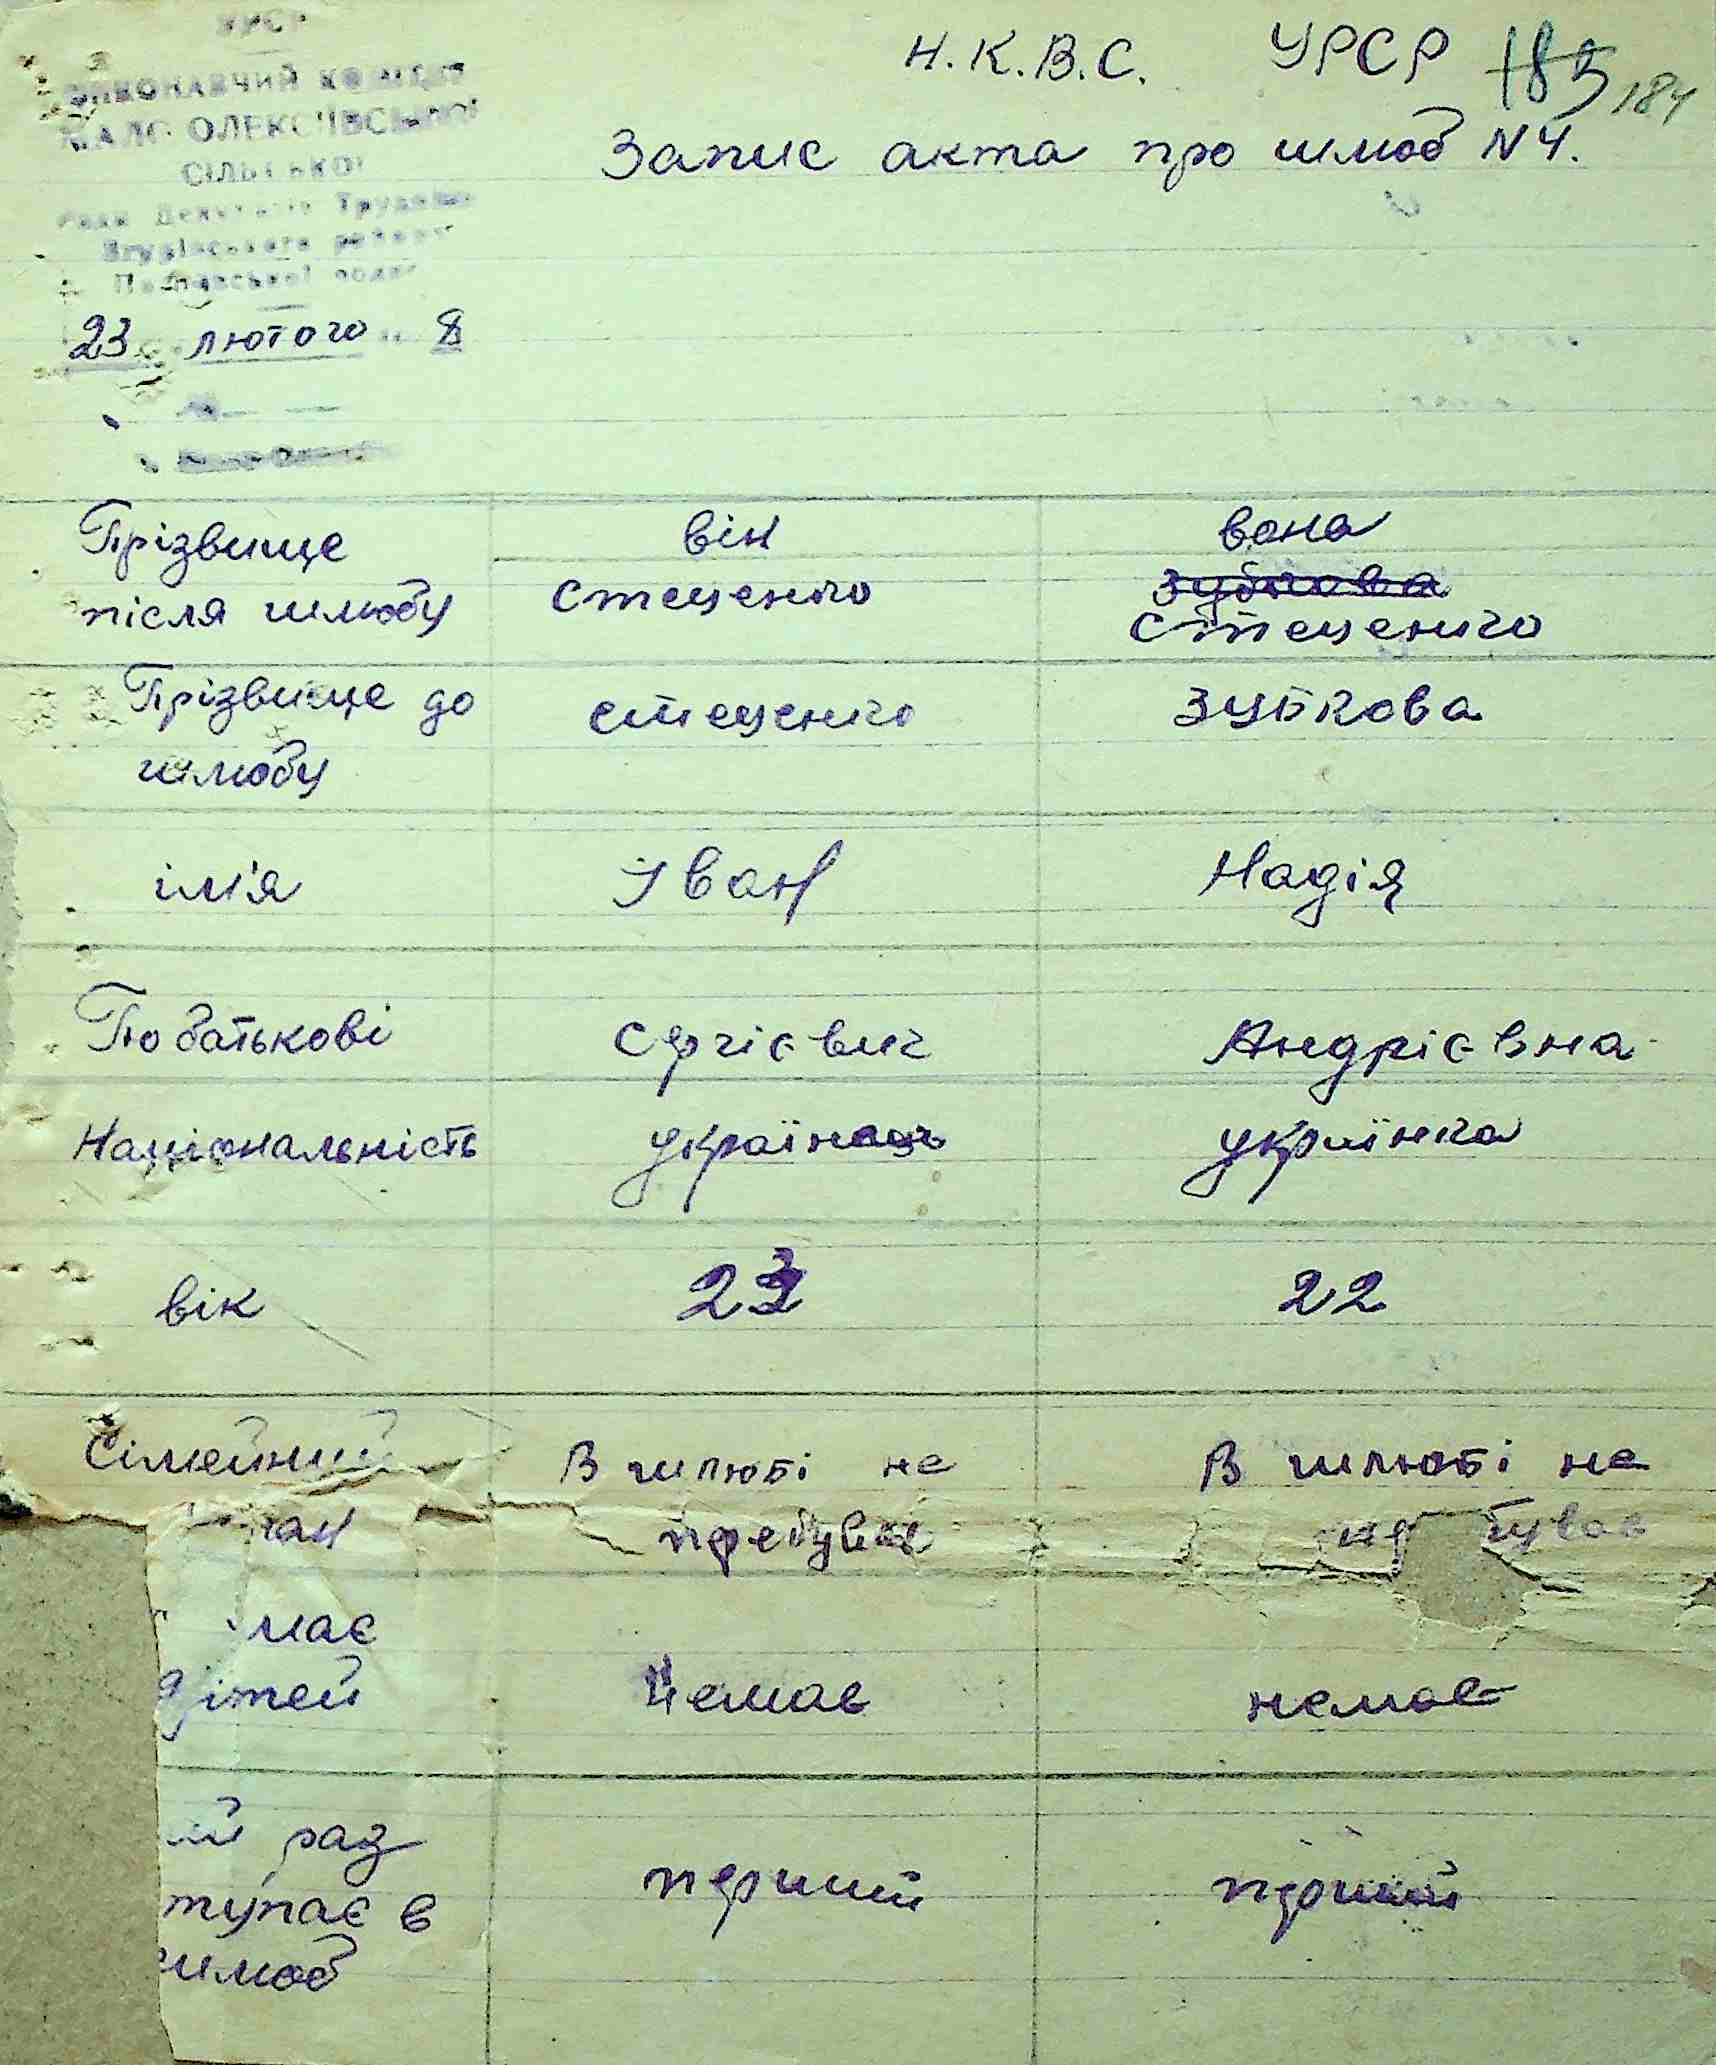 УРСР
ВИКОНАВЧИЙ КОМІТЕТ
МАЛО ОЛЕКСІЇВСЬКОЇ
СІЛЬСЬКОЇ
Ради Депутатів Трудящих
Згурівського району
Полтавської області
23 лютого 8
Н.К.В.С. УРСР 183 184
Запис акта про шлюб N4.
Прізвище після шлюбу
він
Стеценко
вона
Зубкова
Стеценко
Прізвище до шлюбу
Стеценко
Зубкова
ім'я
Іван
Надія
По батькові
Сергієвич
Андрієвна
Національність
українець
українка
вік
23
22
Сімейний
В шлюбі не
пребував
В шлюбі не
має
дітей
немає
немає
ий раз
тупає в
шлюб
перший
перший